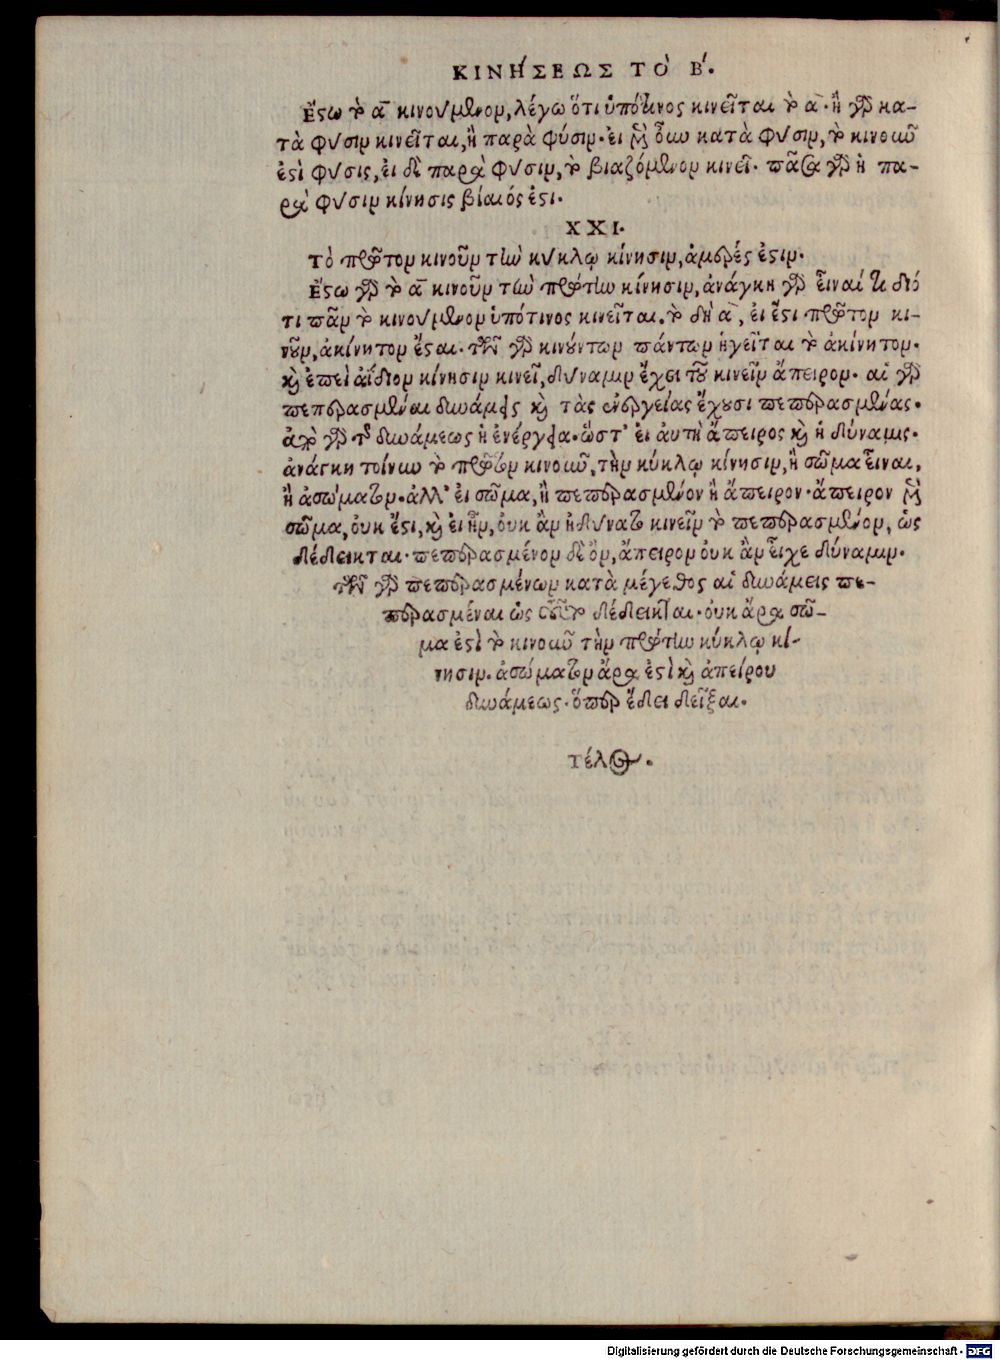 ΚΙΝΉΣΕΩΣ ΤῸ Β́.
Ἔστω τὸ α κινούμενον, λέγω ὅτι ὑπό τινος κινεῖται τὸ α. ἢ γὰρ κα-
τὰ φύσιν κινεῖται, ἢ παρὰ φύσιν. εἰ μὲν οὖν κατὰ φύσιν, τὸ κινοῦν
ἐστὶ φύσις, εἰ δὲ παρὰ φύσιν, τὸ βιαζόμενον κινεῖ. πᾶσα γὰρ ἡ πα-
ρὰ φύσιν κίνησις βίαιός ἐστι.
XXI.
Τὸ πρῶτον κινοῦν τὴν κύκλῳ κίνησιν, ἀμερές ἐστιν.
Ἔστω γὰρ τὸ α κινοῦν τὴν πρώτην κίνησιν, ἀνάγκη γὰρ εἶναί τι διό
τι πᾶν τὸ κινούμενον ὑπότινος κινεῖται. τὸ δὴ α, εἰ ἔστι πρῶτον κι-
νοῦν, ἀκίνητον ἔσται. τῶν γὰρ κινούντων πάντων ἡγεῖται τὸ ἀκίνητον.
καὶ ἐπεὶ ἀΐδιον κίνησιν κινεῖ, δύναμιν ἔχει τοῦ κινεῖν ἄπειρον. αἱ γὰρ
πεπερασμέναι δυνάμεις καὶ τὰς ἐνεργείας ἔχουσι πεπερασμένας.
ἀπὸ γὰρ τῆς δυνάμεως ἡ ἐνέργεια. ὥστ' εἰ αὐτὴ ἄπειρος καὶ ἡ δύναμις.
ἀνάγκη τοίνυν τὸ πρῶτον κινοῦν, τὴν κύκλῳ κίνησιν, ἢ σῶμα εἶναι,
ἢ ἀσώματον. ἀλλ' εἰ σῶμα, ἢ πεπερασμένον ἢ ἄπειρον. ἄπειρον μὲν
σῶμα, οὐκ ἔστι, καὶ εἰ ἦν, οὐκ ἂν ἠδύνατο κινεῖν τὸ πεπερασμένον, ὡς
δέδεικται. πεπερασμένον δὲ ὂν, ἄπειρον οὐκ ἂν εἶχε δύναμιν.
τῶν γὰρ πεπερασμένων κατὰ μέγεθος αἱ δυνάμεις πε-
περασμέναι ὡς τοῦτο δέδεικται. οὐκ ἄρα σῶ-
μα ἐστὶ τὸ κινοῦν τὴν πρώτην κύκλῳ κί-
νησιν. ἀσώματον ἄρα ἐστὶ καὶ ἀπείρου
δυνάμεως. ὅπερ ἔδει δεῖξαι.
τέλος.
Digitalisierung gefördert durch die Deutsche Forschungsgemeinschaft - DFG